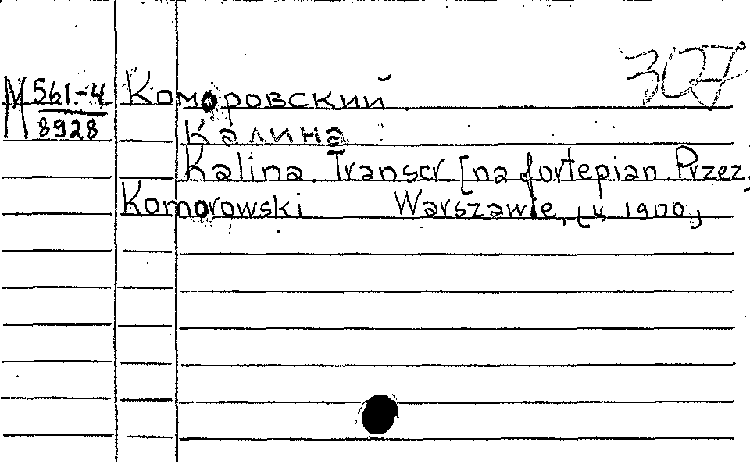 307
М 561-4 Коморовский
8928 Калина
Kalina. Transcr [na fortepian. Przez
Komorowski Warszawie, [к 1900]